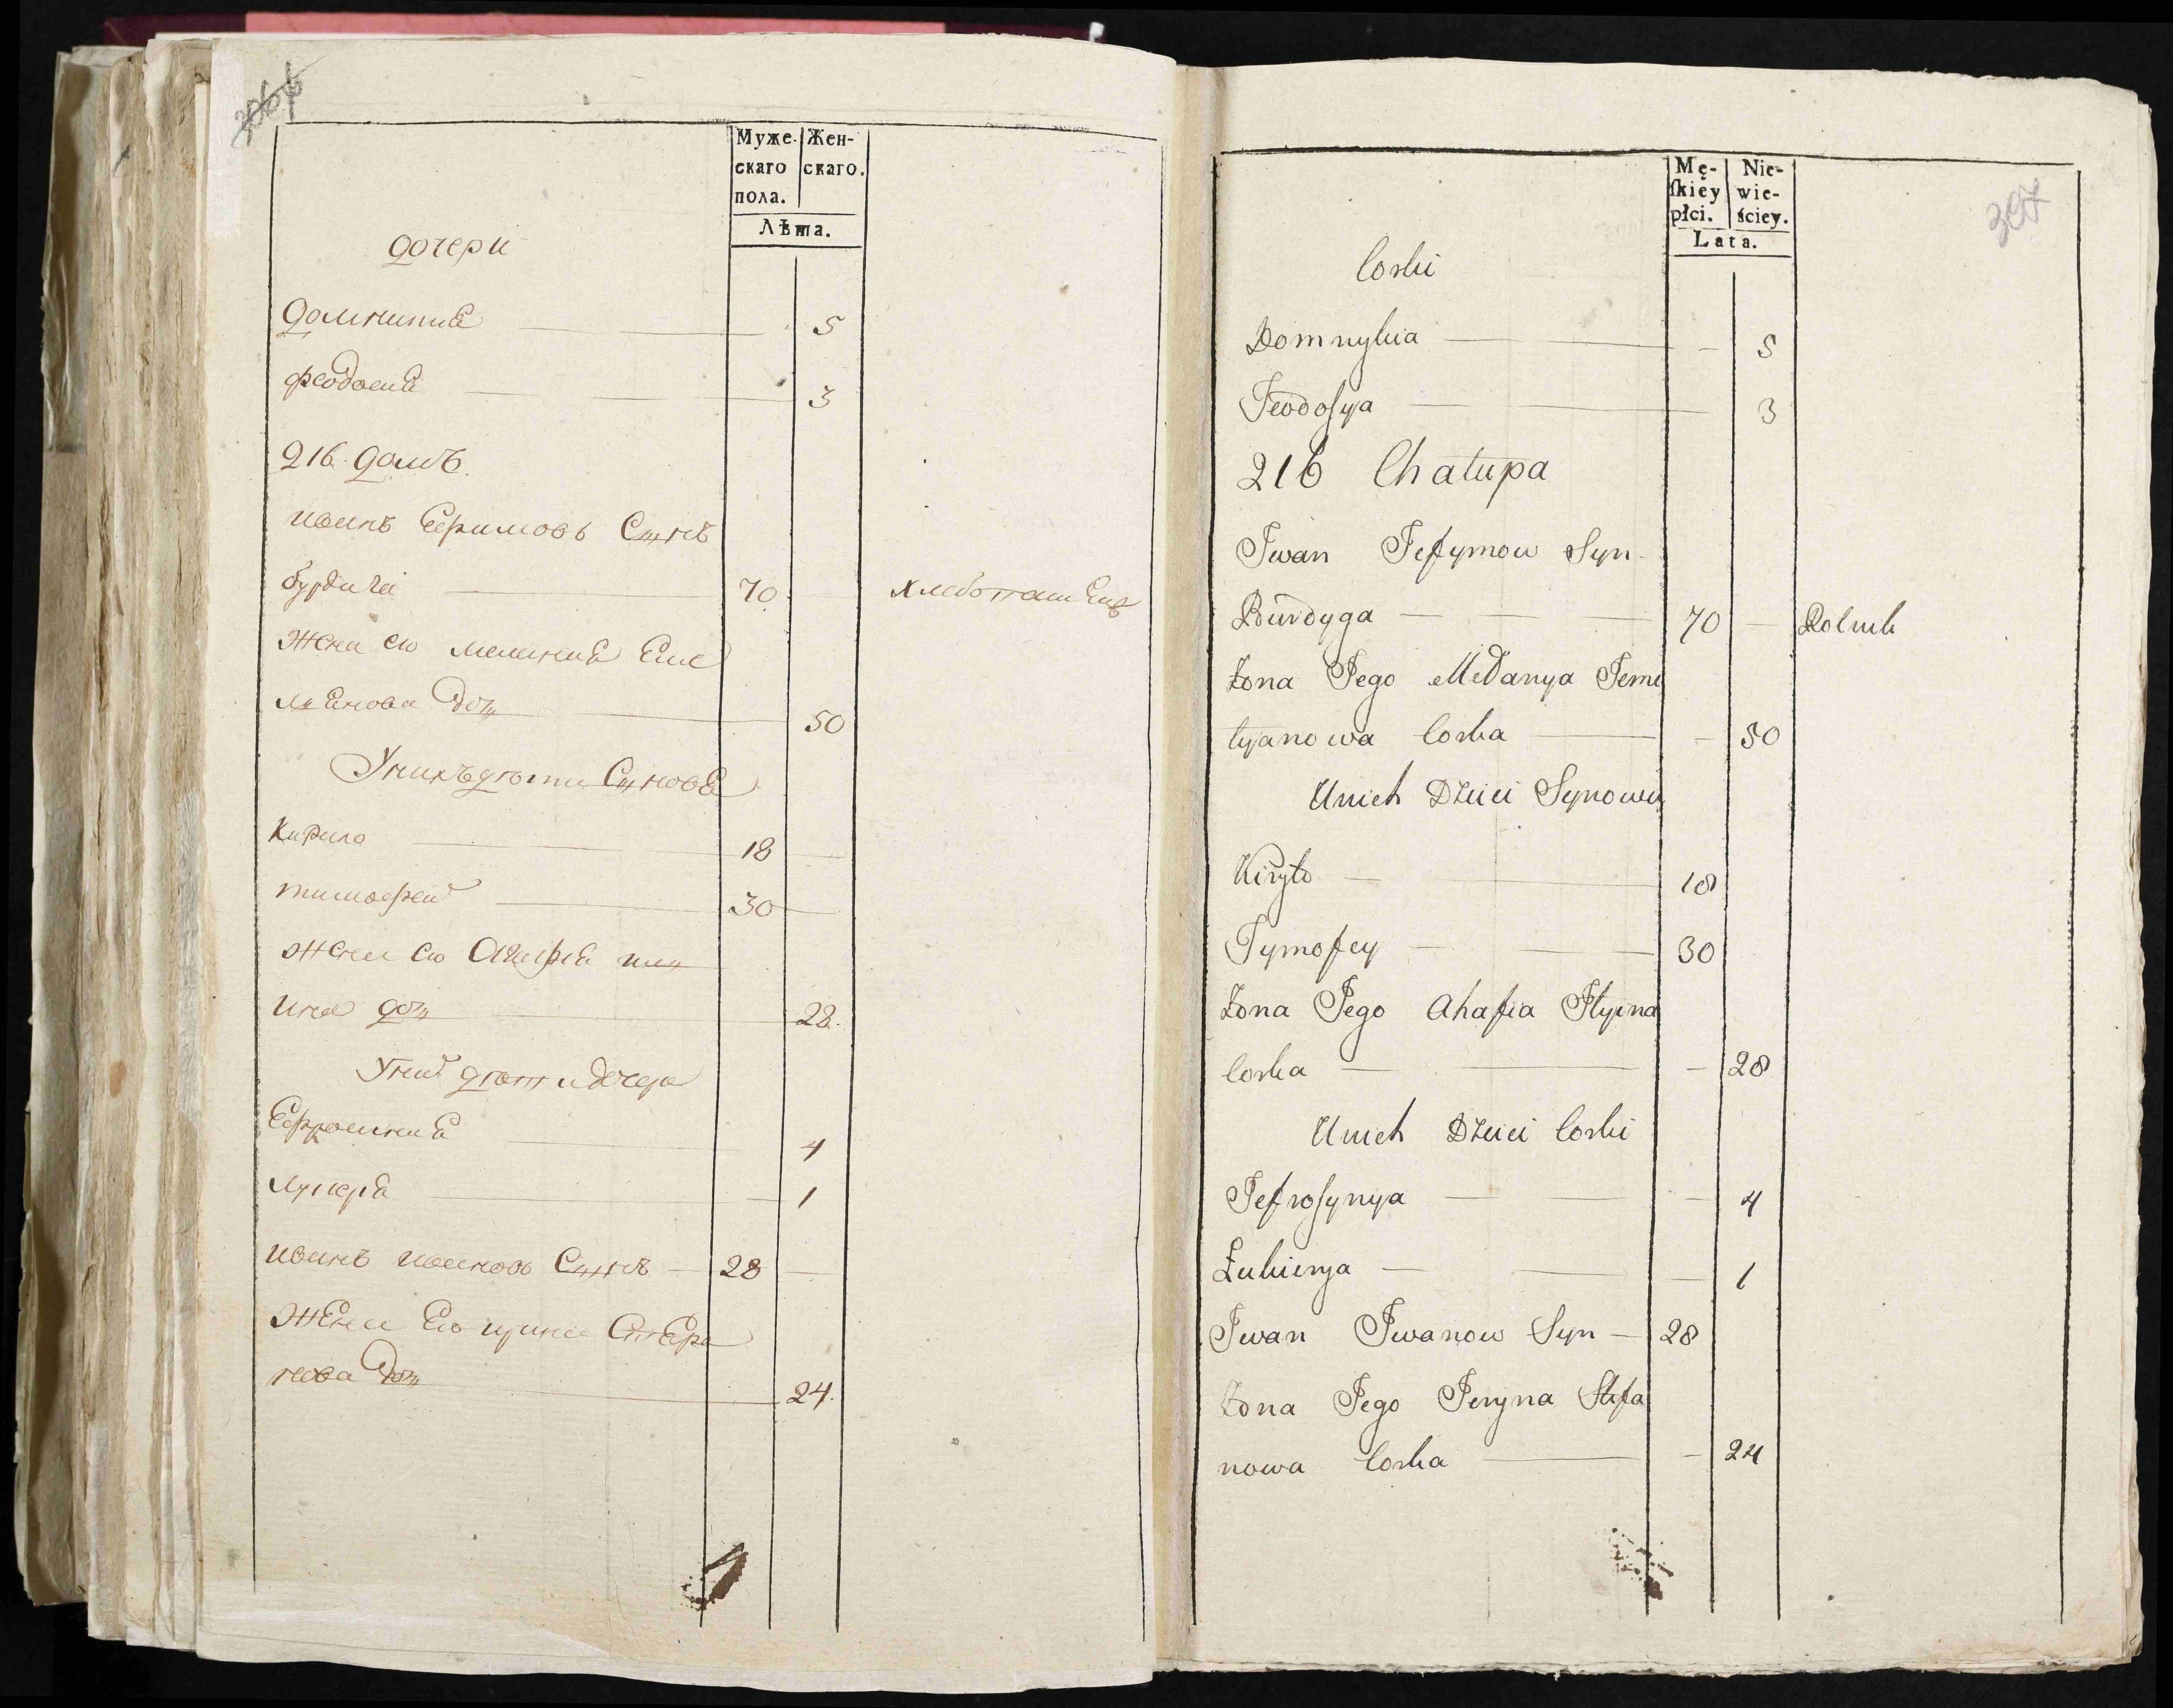 Муже- Жен-
скаго скаго.
пола.
Лѣта.
дочери
Домникиа 5
феодосиа 3
216 домъ
иванъ Ефимовъ Сынъ
бурдига 70 хлебопашецъ
жена ево меланиа Еме
лянова дочь 50
У нихъ дѣти Сыновья
Кирило 18
тимофей 30
жена ево Агафиа или
ина дочь 28.
У них дѣти дочери
Ефросиниа 4
лукериа 1
иванъ ивановъ Сынъ 28
жена Ево ирина Стефа
нова дочь 24.
Mę- Nie-
ſkiey wie-
płci. ściey.
Lata.
307
Corki
Domnykia 5
Feodoſya 3
216 Chałupa
Jwan Jefymow Syn
Burdyga 70 Rolnik
Żona Jego Mełanya Jeme
lyanowa Corka 50
U nich Dzieci Synowie
Kiryło 18
Tymofey 30
Żona Jego Ahafia Jlyina
Corka 28
U nich Dzieci Corki
Jefroſynya 4
Łukierya 1
Jwan Jwanow Syn 28
Żona Jego Jeryna Stefa
nowa Corka 24